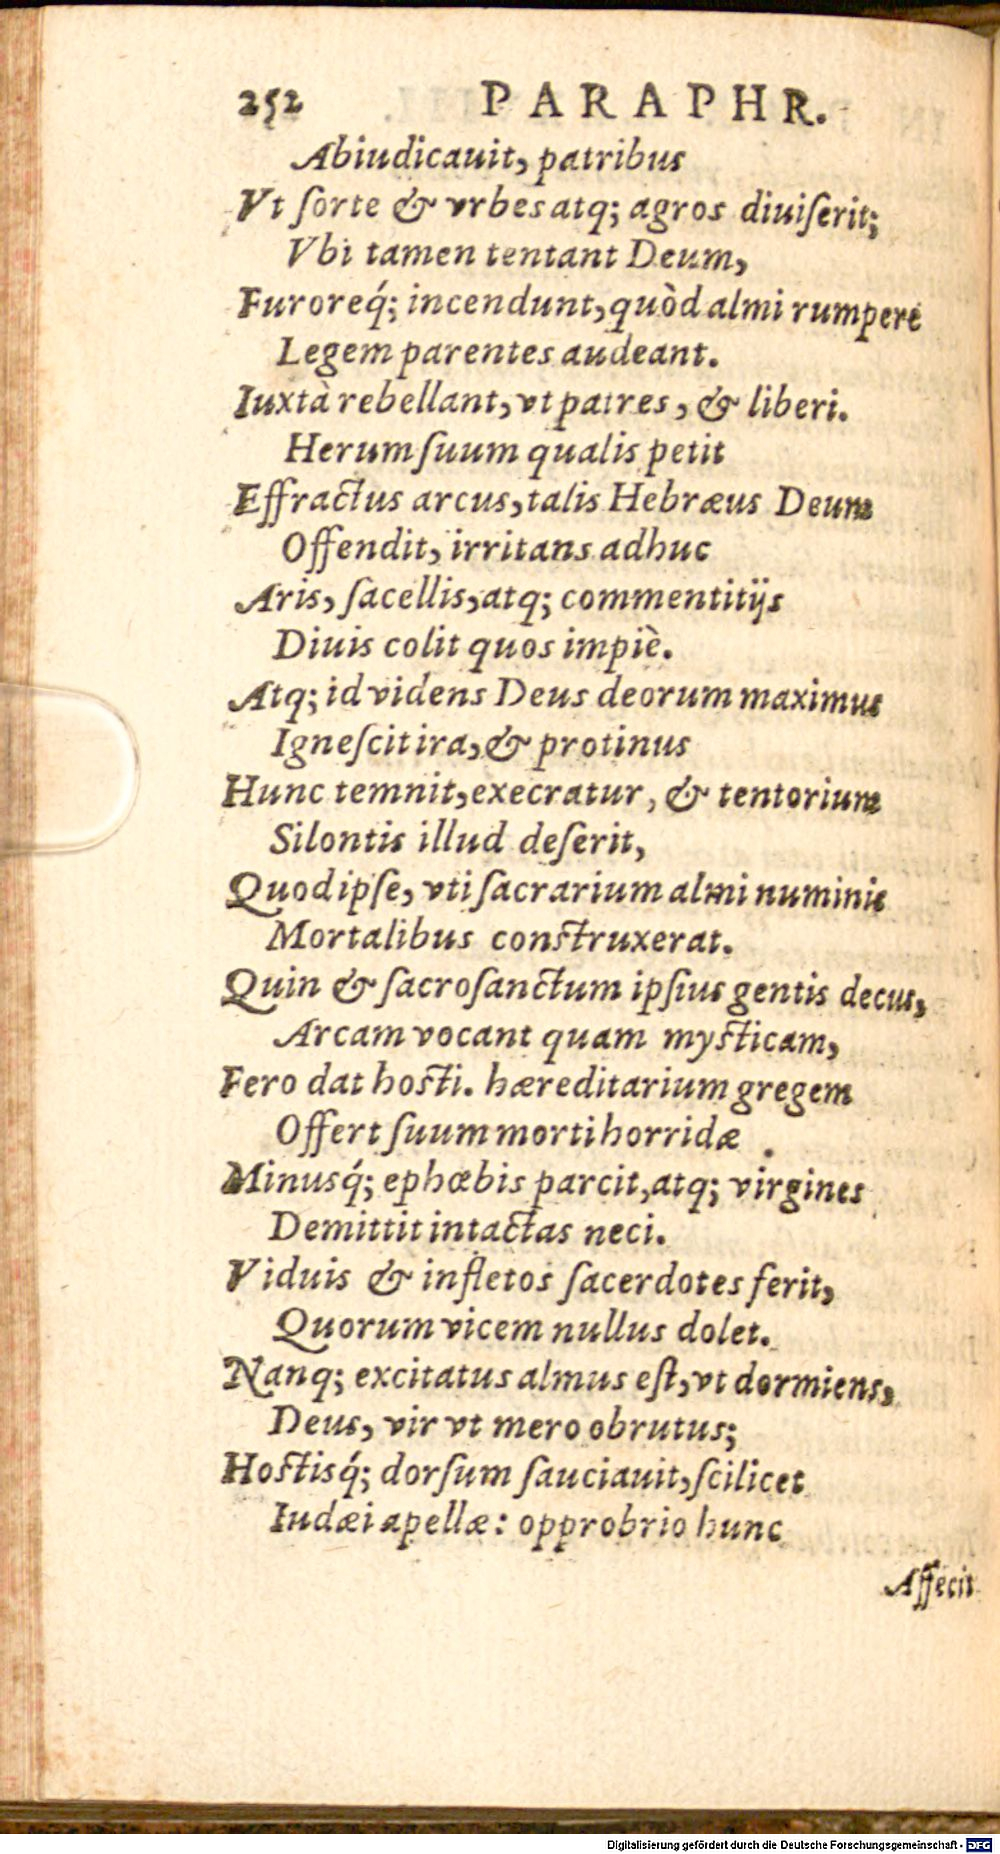 252 PARAPHR.
Abiudicauit, patribus
Vt ſorte & vrbes atq; agros diuiſerit;
Vbi tamen tentant Deum,
Furoreq́; incendunt, quòd almi rumpere
Legem parentes audeant.
Iuxtà rebellant, vt patres, & liberi.
Herum ſuum qualis petit
Effractus arcus, talis Hebræus Deum
Offendit, irritans adhuc
Aris, ſacellis, atq; commentitijs
Diuis colit quos impiè.
Atq; id videns Deus deorum maximus
Igneſcit ira, & protinus
Hunc temnit, execratur, & tentorium
Silontis illud deſerit,
Quod ipſe, vti ſacrarium almi numinis
Mortalibus conſtruxerat.
Quin & ſacroſanctum ipſius gentis decus,
Arcam vocant quam myſticam,
Fero dat hoſti. hæreditarium gregem
Offert ſuum morti horridæ.
Minusq́; ephœbis parcit, atq; virgines
Demittit intactas neci.
Viduis & infletos ſacerdotes ferit,
Quorum vicem nullus dolet.
Nanq; excitatus almus eſt, vt dormiens,
Deus, vir vt mero obrutus;
Hoſtisq́; dorſum ſauciauit, ſcilicet
Iudæi apellæ: opprobrio hunc
Affecit
Digitalisierung gefördert durch die Deutsche Forschungsgemeinschaft - DFG